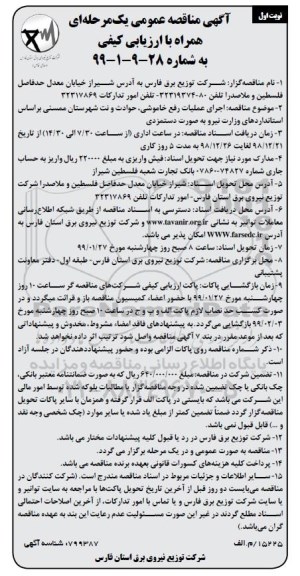 نوبت اول
آگهی مناقصه عمومی یک‌مرحله‌ای
همراه با ارزیابی کیفی
به شماره ۲۸-۹-۱-۹۹
۱- نام مناقصه‌گزار: شرکت توزیع برق فارس به آدرس شیراز خیابان معدل حدفاصل
فلسطین و ملاصدرا تلفن ۸۰-۳۲۳۱۹۳۷۴ تلفن امور تدارکات ۳۲۳۱۷۸۶۹
۲- موضوع مناقصه: اجرای عملیات رفع خاموشی، حوادث و نت شهرستان ممسنی براساس
استانداردهای وزارت نیرو به صورت دستمزدی
۳- زمان دریافت اسناد مناقصه: در ساعت اداری (از ساعت ۷/۳۰ الی ۱۴/۳۰) از تاریخ
۹۸/۱۲/۲۱ لغایت ۹۸/۱۲/۲۶ به مدت ۵ روز کاری
۴- مدارک مورد نیاز جهت تحویل اسناد: فیش واریزی به مبلغ ۲۲۰۰۰۰ ریال واریز به حساب
جاری شماره ۰۷۸۶۰۰۷۴۸۲۷ بانک تجارت شعبه فلسطین شیراز
۵- آدرس محل تحویل اسناد: شیراز خیابان معدل حدفاصل فلسطین و ملاصدرا شرکت
توزیع نیروی برق استان فارس- امور تدارکات تلفن ۳۲۳۱۷۸۶۹
۶- آدرس محل دریافت اسناد: دسترسی به اسناد مناقصه از طریق شبکه اطلاع‌رسانی
معاملات توانیر به نشانی www.tavanir.org.ir و شرکت توزیع نیروی برق استان فارس به
آدرس WWW.farsedc.ir امکان پذیر می باشد.
۷- زمان تحویل اسناد: ساعت ۸ صبح روز چهارشنبه مورخ ۹۹/۰۱/۲۷
۸- محل برگزاری مناقصه: شرکت توزیع نیروی برق استان فارس- طبقه اول- دفتر معاونت
پشتیبانی
۹- زمان بازگشایی پاکات: پاکت ارزیابی کیفی شرکت‌های مناقصه گر ساعت ۱۰ روز
چهارشنبه مورخ ۹۹/۰۱/۲۷ با حضور اعضاء کمیسیون مناقصه باز و قرائت میگردد و در
صورت کسب حد نصاب لازم پاکت الف و ب و ج در ساعت ۱۰ صبح روز چهارشنبه مورخ
۹۹/۰۲/۰۳ بازگشایی می‌گردد. به پیشنهادهای فاقد امضاء مشروط، مخدوش و پیشنهاداتی
که بعد از موعد مقرر در بند ۷ آگهی مناقصه واصل شود ترتیب اثر داده نخواهد شد
۱۰- ذکر شماره مناقصه روی پاکات الزامی بوده و حضور پیشنهاددهندگان در جلسه آزاد
است.
۱۱- تضمین شرکت در مناقصه: مبلغ ۶۴۰/۰۰۰/۰۰۰ ریال که به صورت ضمانتنامه معتبر بانکی،
چک بانکی یا چک تضمین شده در وجه مناقصه‌گزار یا مطالبات بلوکه شده توسط امور مالی
این شرکت می باشد که بایستی در پاکت الف قرار گرفته و همزمان با سایر پاکات تحویل
مناقصه‌گزار گردد ضمناً تضمین کمتر از مبلغ یاد شده یا سایر موارد (چک شخصی وجه نقد
و ...) قابل قبول نمی باشد.
۱۲- شرکت توزیع برق فارس در رد یا قبول کلیه پیشنهادات مختار می باشد.
۱۳- مناقصه به صورت عمومی و در یک مرحله برگزار می گردد.
۱۴- پرداخت کلیه هزینه‌های کسورات قانونی بعهده برنده مناقصه می باشد.
۱۵- سایر اطلاعات و جزئیات مربوط در اسناد مناقصه مندرج است. (شرکت کنندگان در
مناقصه می‌بایست دو روز قبل از آخرین تاریخ تحویل پاکت‌ها با مراجعه به سایت توانیر و
یا سایت شرکت توزیع برق فارس و یا تماس با امور تدارکات، از آخرین اصلاحات احتمالی
اسناد مطلع گردند در غیر این صورت مسئولیت عدم رعایت این بند به عهده مناقصه
گران می‌باشد.)
۱۵۲۲۵/م الف
شناسه آگهی ۷۹۹۳۸۷
شرکت توزیع نیروی برق استان فارس